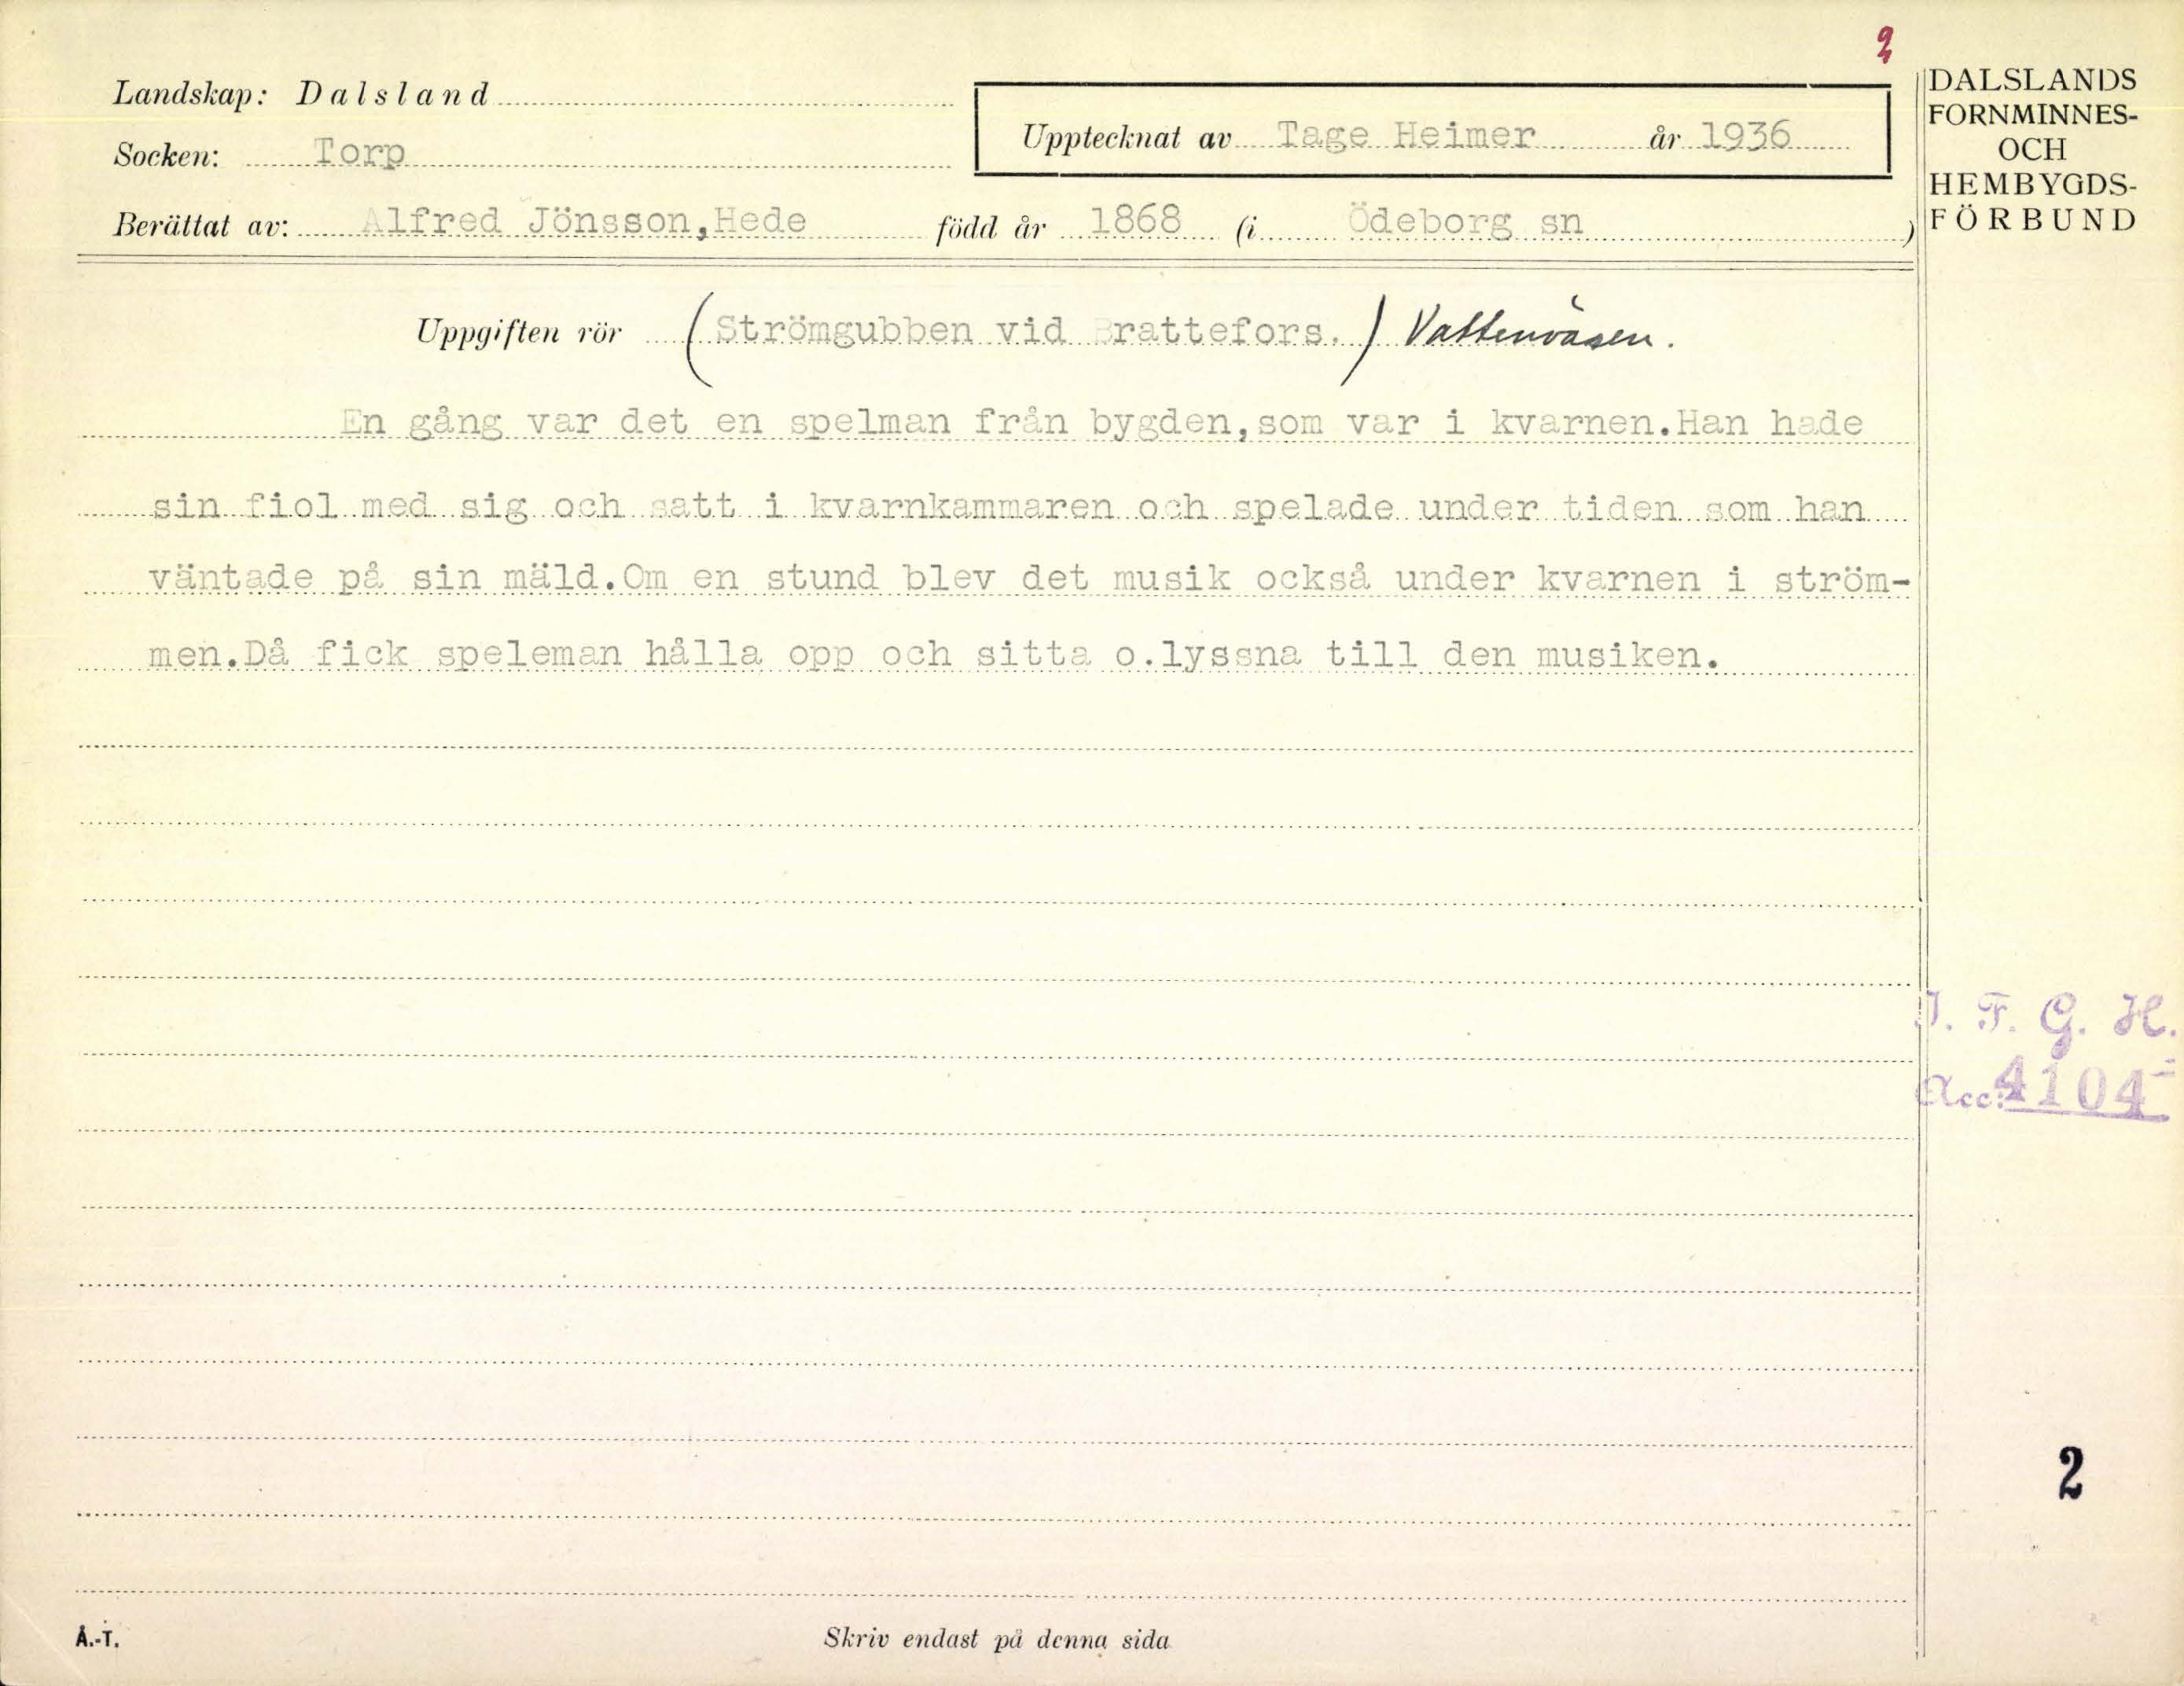 2
Landskap: Dalsland
Socken: Torp
Upptecknat av Tage Heimer år 1936
Berättat av: Alfred Jönsson,Hede född år 1868 (i Ödeborg sn )
DALSLANDS
FORNMINNES-
OCH
HEMBYGDS-
FÖRBUND
Uppgiften rör (Strömgubben vid Brattefors.) Vattenväsen.
En gång var det en spelman från bygden,som var i kvarnen.Han hade
sin fiol med sig och satt i kvarnkammaren och spelade under tiden som han
väntade på sin mäld.Om en stund blev det musik också under kvarnen i ström-
men.Då fick speleman hålla opp och sitta o.lyssna till den musiken.
I. F. G. H.
Acc. 4104
2
Å.-T.
Skriv endast på denna sida